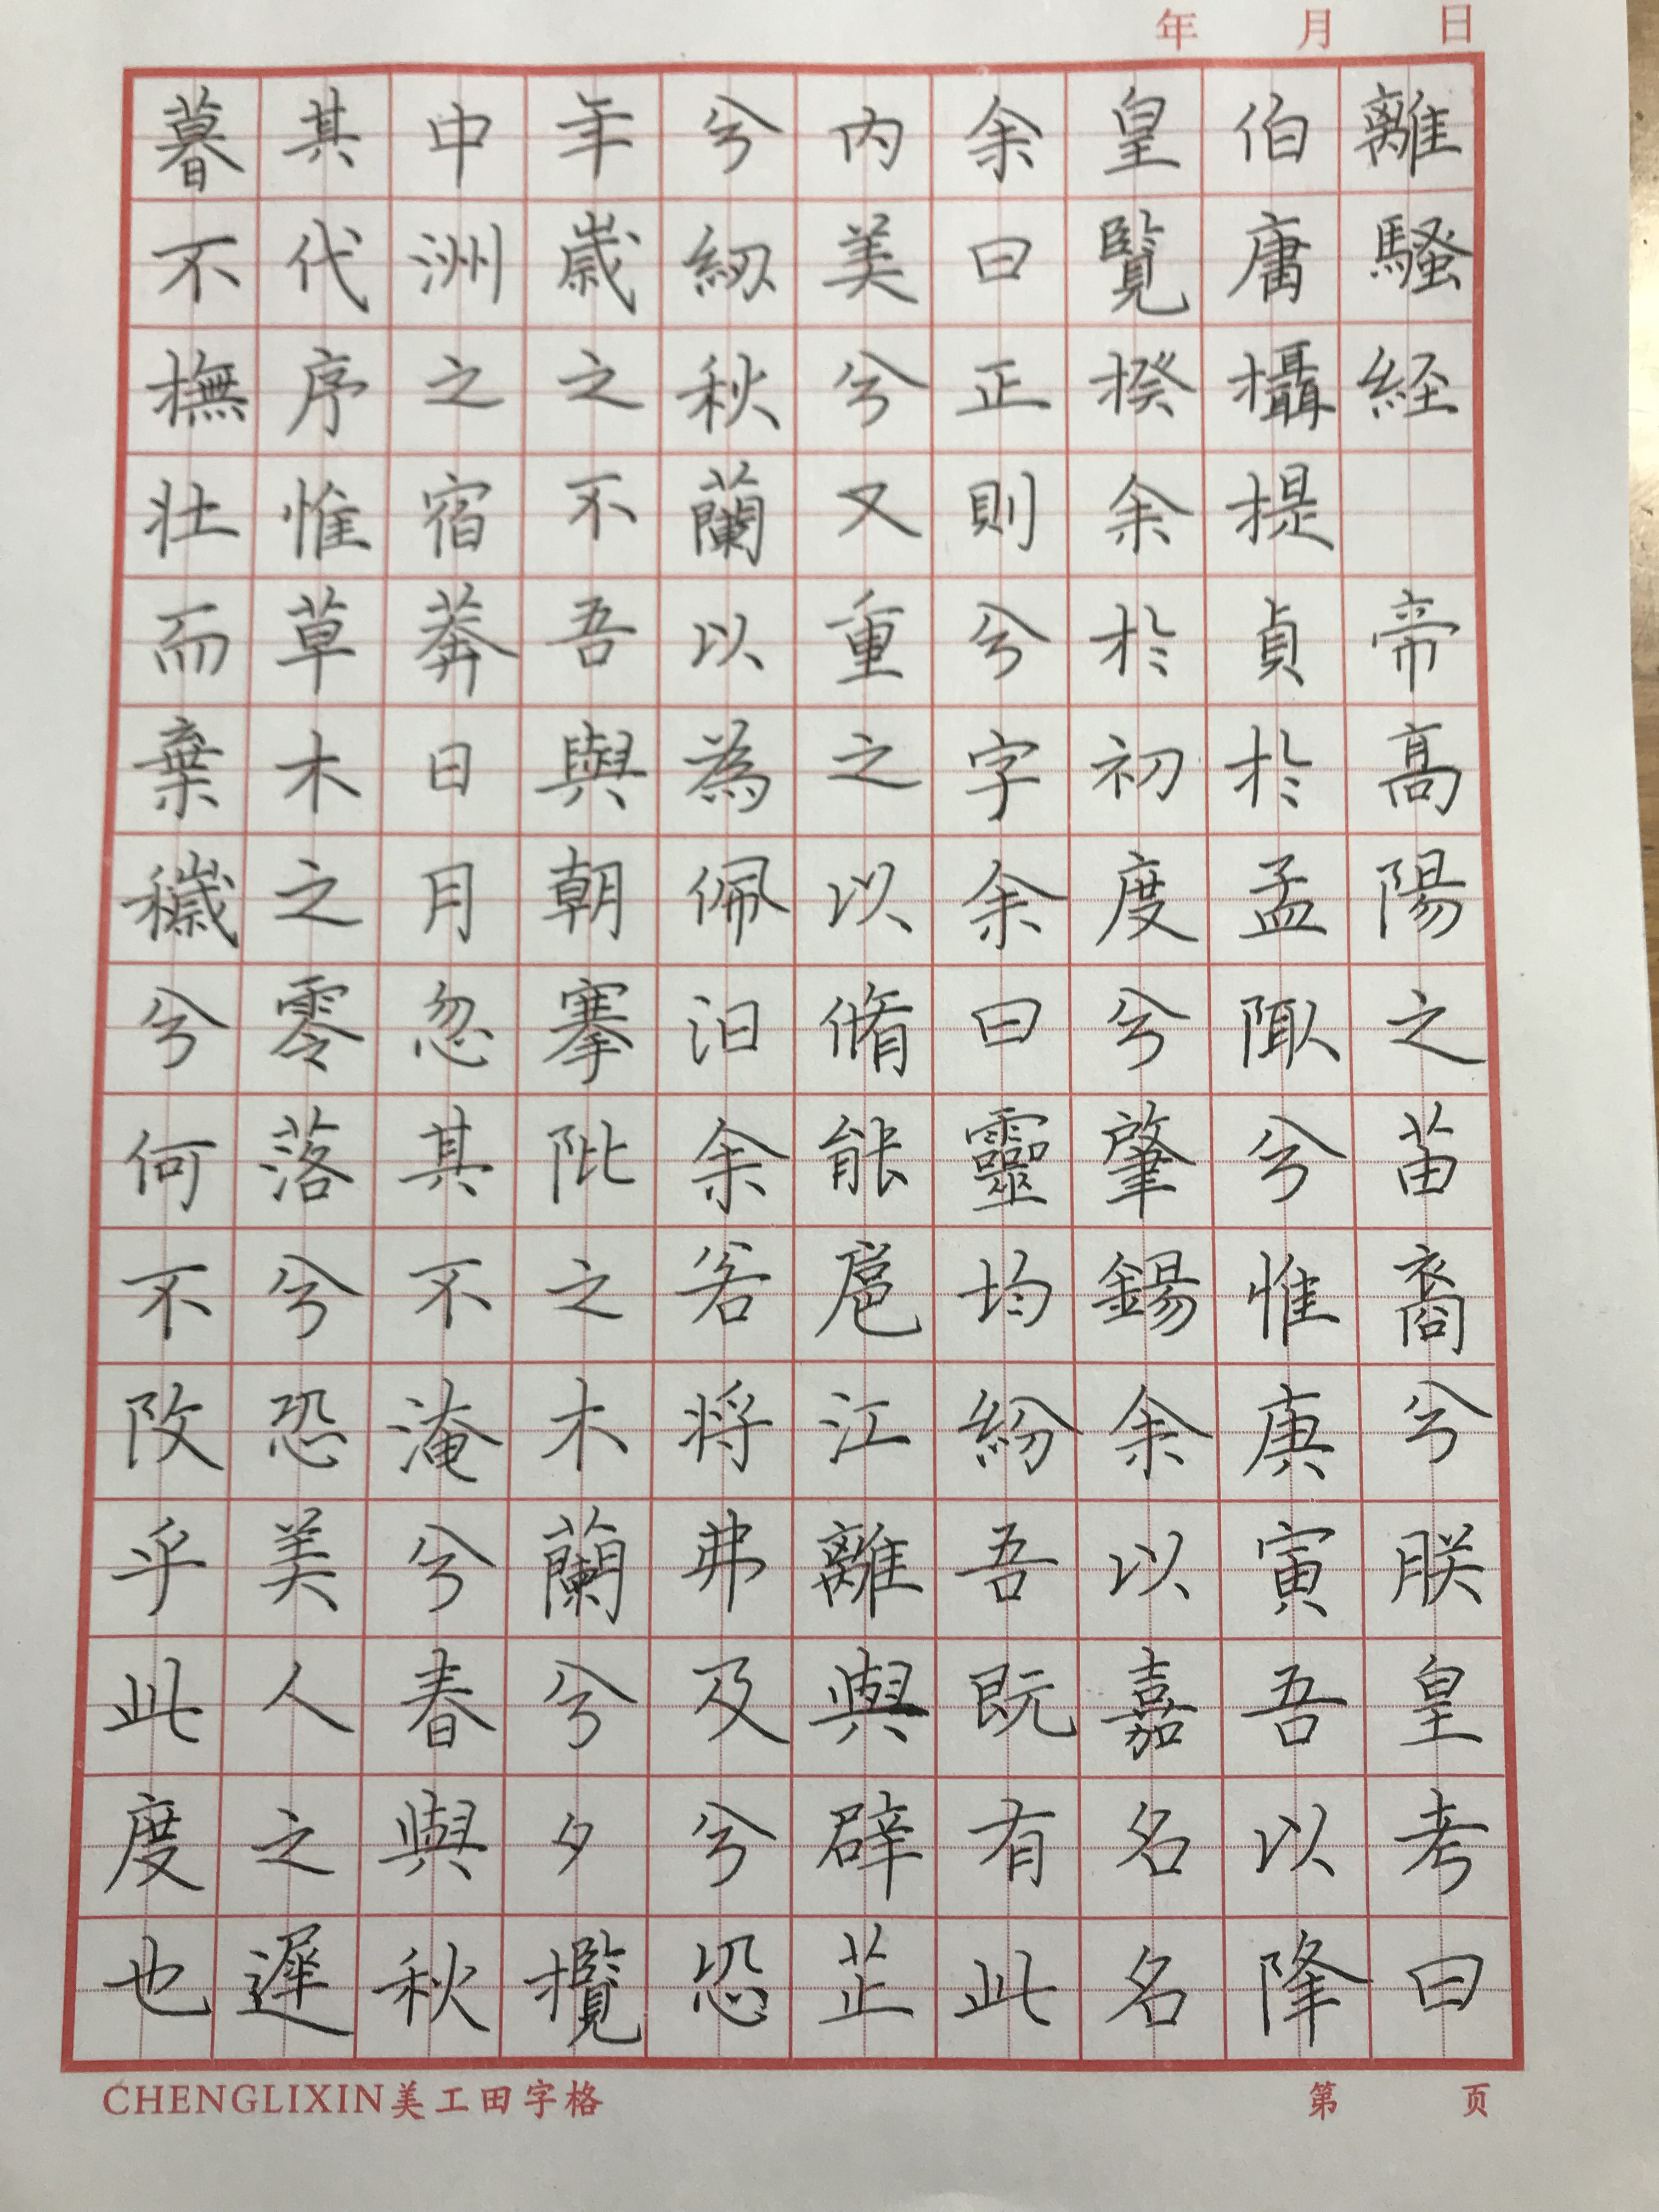 年 月 日
離騷経 帝高陽之苗裔兮朕皇考曰
伯庸攝提貞於孟陬兮惟庚寅吾以降
皇覽揆余於初度兮肇錫余以嘉名名
余曰正則兮字余曰靈均紛吾既有此
內美兮又重之以脩能扈江離與辟芷
兮紉秋蘭以為佩汨余若將弗及兮恐
年歲之不吾與朝搴阰之木蘭兮夕攬
中洲之宿莽日月忽其不淹兮春與秋
其代序惟草木之零落兮恐美人之遲
暮不撫壯而棄穢兮何不改乎此度也
CHENGLIXIN美工田字格
第 页